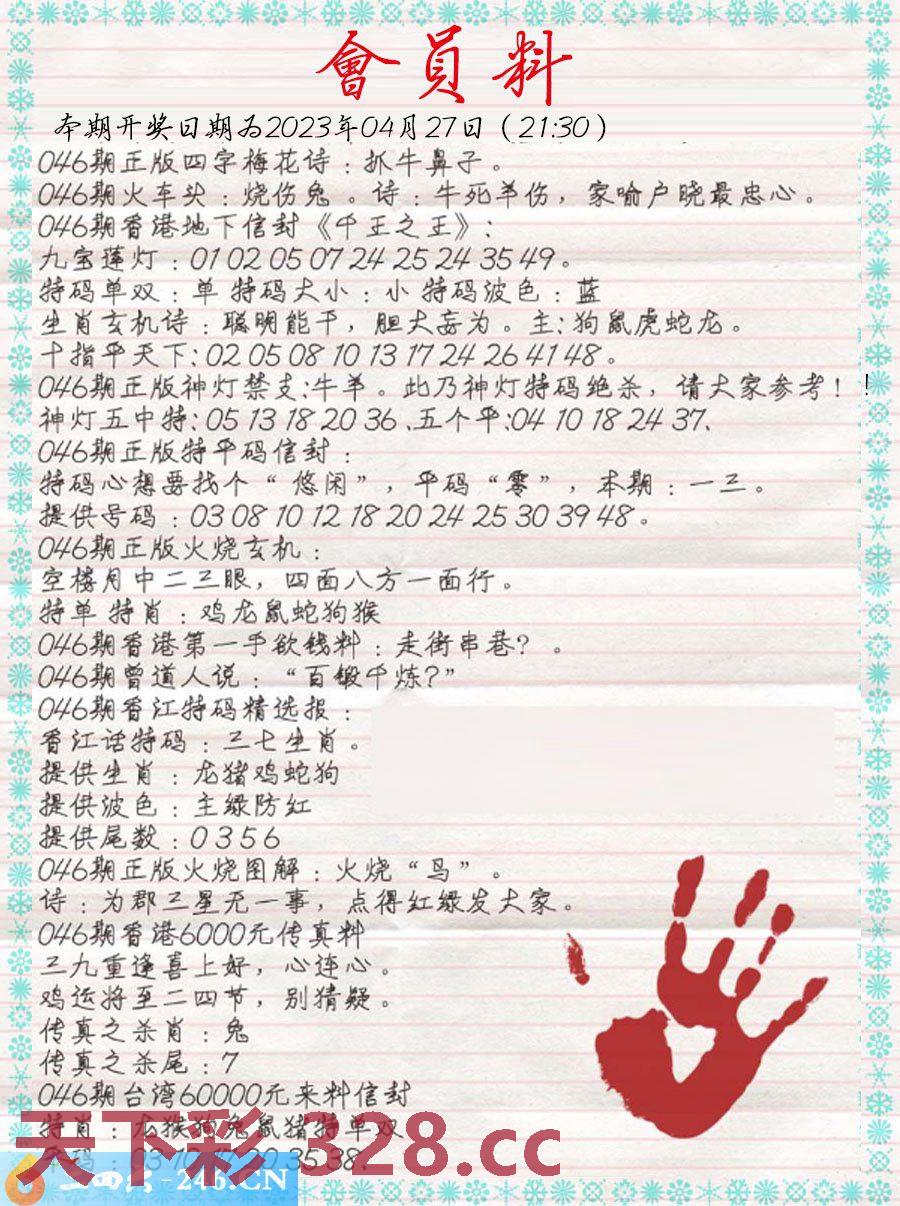 會員料
本期开奖日期为2023年04月27日（21:30）
046期正版四字梅花诗：抓牛鼻子。
046期火车头：烧伤兔。诗：牛死羊伤，家喻户晓最忠心。
046期香港地下信封《千王之王》：
九宝莲灯：01 02 05 07 24 25 24 35 49。
特码单双：单 特码大小：小 特码波色：蓝
生肖玄机诗：聪明能干，胆大妄为。主：狗鼠虎蛇龙。
十指平天下：02 05 08 10 13 17 24 26 41 48。
046期正版神灯禁支：牛羊。此乃神灯特码绝杀，请大家参考！！
神灯五中特：05 13 18 20 36、五个平：04 10 18 24 37、
046期正版特平码信封：
特码心想要找个“悠闲”，平码“零”，本期：一三。
提供号码：03 08 10 12 18 20 24 25 30 39 48。
046期正版火烧玄机：
空楼月中二三眼，四面八方一面行。
特单 特肖：鸡龙鼠蛇狗猴
046期香港第一手欲钱料：走街串巷？。
046期曾道人说：“百锻千炼？”
046期香江特码精选报：
香江话特码：三七生肖。
提供生肖：龙猪鸡蛇狗
提供波色：主绿防红
提供尾数：0 3 5 6
046期正版火烧图解：火烧“鸟”。
诗：为郡三星无一事，点得红绿发大家。
046期香港6000元传真料
三九重逢喜上好，心连心。
鸡运将至二四节，别猜疑。
传真之杀肖：兔
传真之杀尾：7
046期台湾60000元来料信封
特肖：龙猴狗兔鼠猪特单双
天下彩 328.cc
35 38.
-246.CN